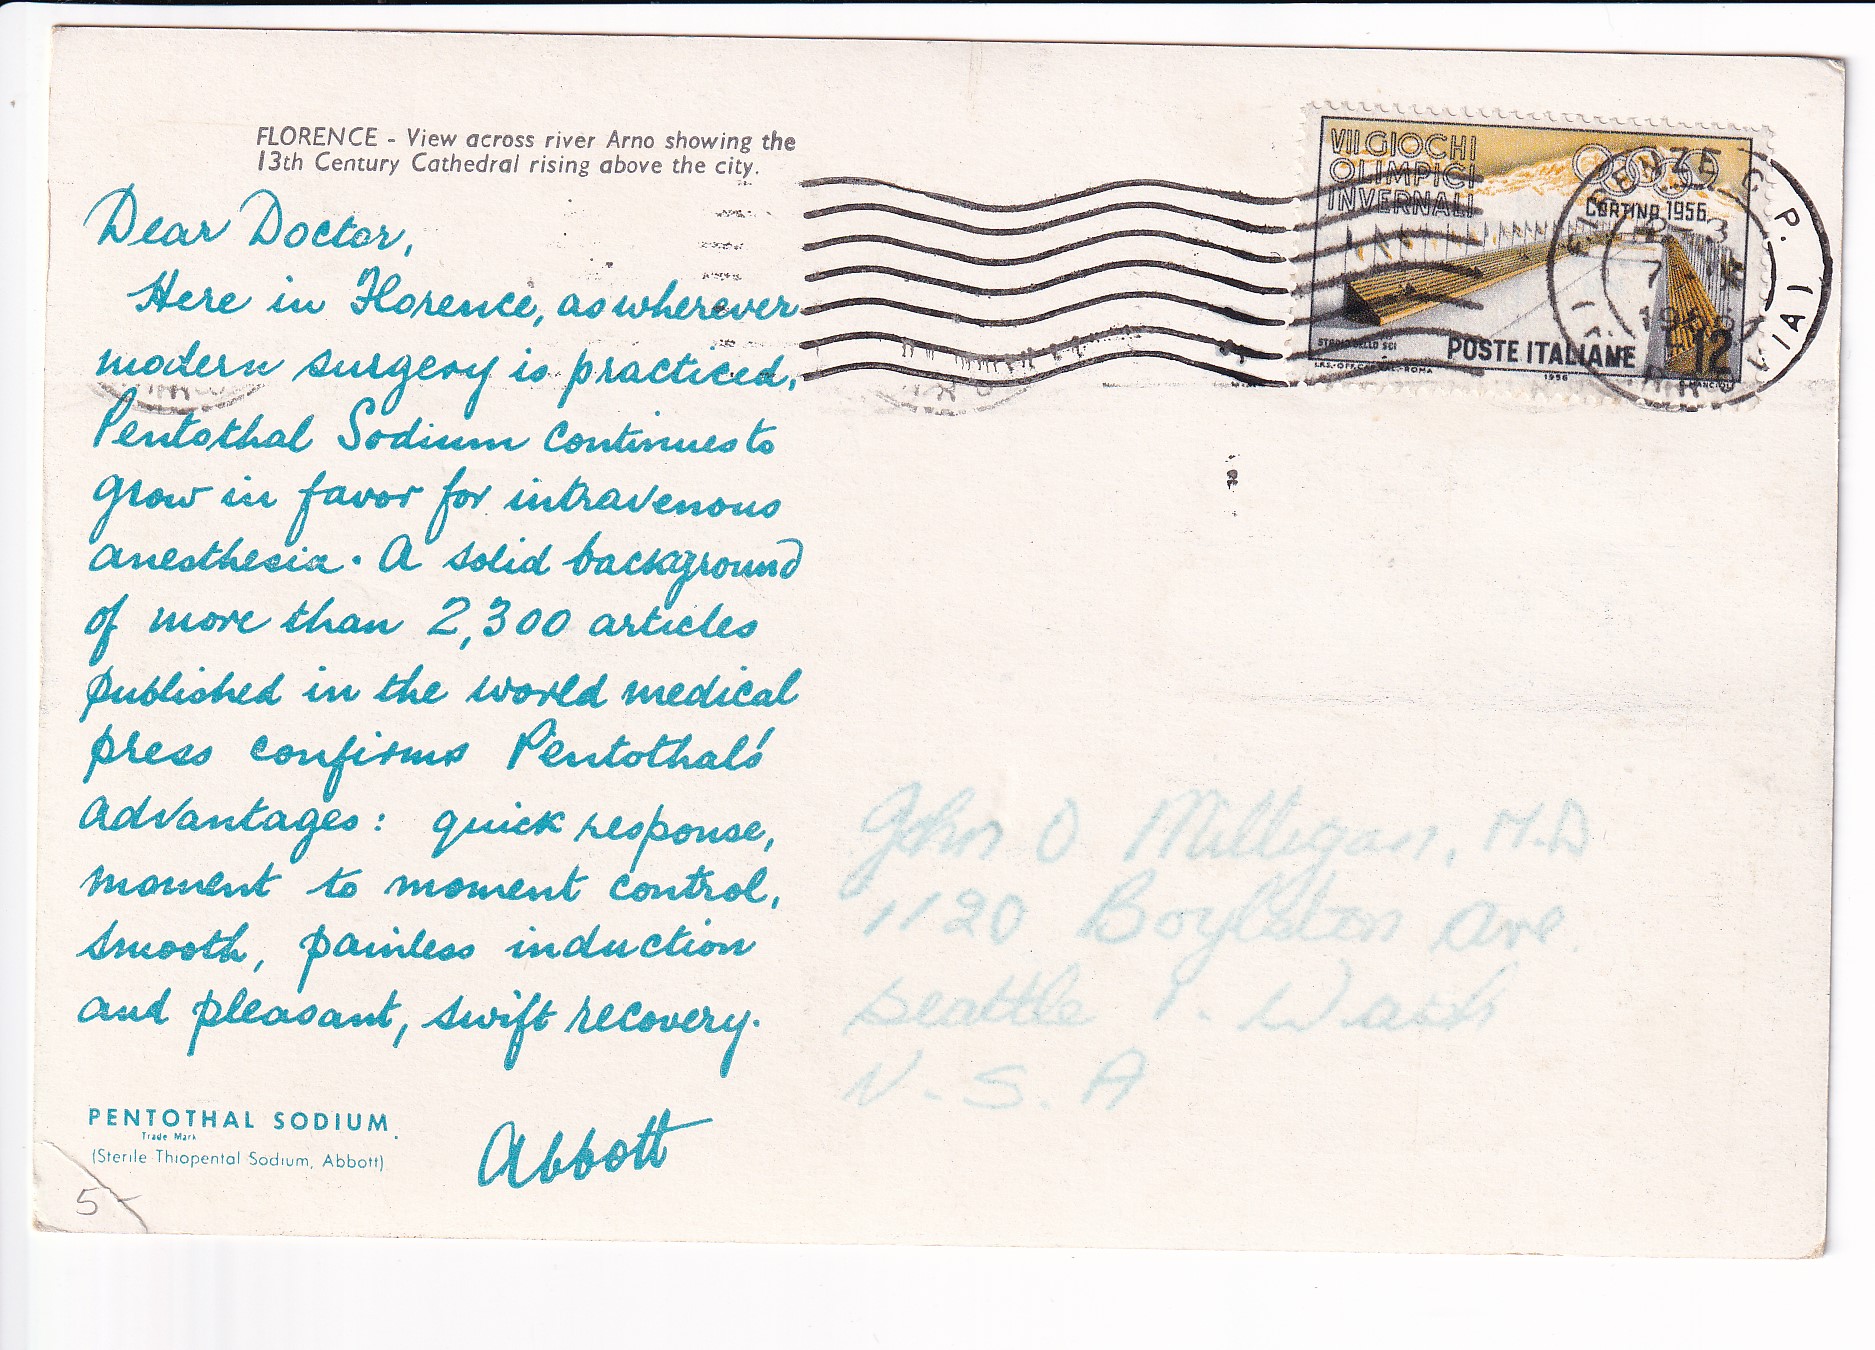 FLORENCE - View across river Arno showing the
13th Century Cathedral rising above the city.
Dear Doctor,
Here in Florence, as wherever
modern surgery is practiced,
Pentothal Sodium continues to
grow in favor for intravenous
anesthesia. A solid background
of more than 2,300 articles
published in the world medical
press confirms Pentothal's
advantages: quick response,
moment to moment control,
smooth, painless induction
and pleasant, swift recovery.
Abbott
PENTOTHAL SODIUM
Trade Mark
(Sterile Thiopental Sodium, Abbott)
5-
VII GIOCHI
OLIMPICI
INVERNALI
CORTINA 1956
STADIO DELLO SCI
POSTE ITALIANE 12
1956
FIRENZE
John O Milligan, M.D
1120 Boylston Ave.
Seattle 1. Wash
U.S.A